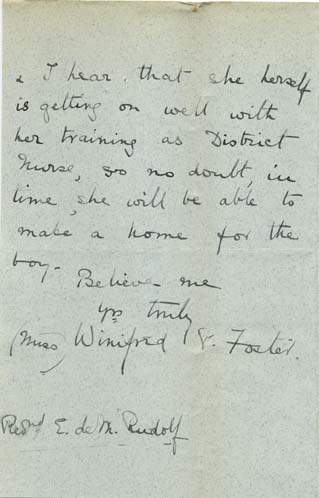 & I hear that she herself
is getting on well with
her training as District
Nurse, so no doubt, in
time, she will be able to
make a home for the
boy.
Believe me
yrs truly
(Miss) Winifred Foster.
Revd E. de M. Rudolf